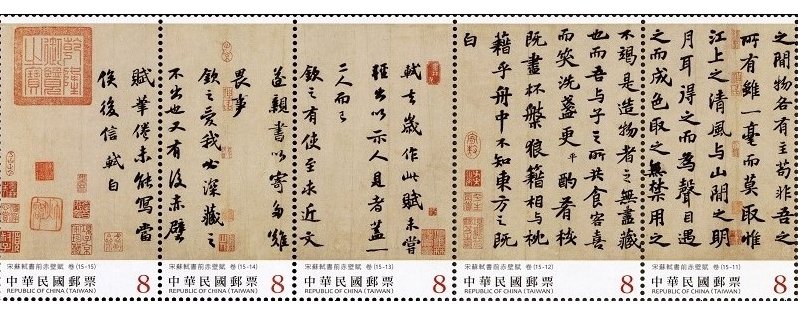 之間物各有主苟非吾之
所有雖一毫而莫取惟
江上之清風與山間之明
月耳得之而為聲目遇
之而成色取之無禁用之
不竭是造物者之無盡藏
也而吾與子之所共食客喜
而笑洗盞更平酌肴核
既盡杯槃狼籍相與枕
藉乎舟中不知東方之既
白
軾去歲作此賦未嘗
輕出以示人見者盖一
二人而已
欽之有使至求近文
遂親書以寄多難
畏事
欽之愛我必深藏之
不出也又有後赤壁
賦筆倦未能寫當
俟後信軾白
乾隆
御覽
之寶
宋蘇軾書前赤壁賦 卷(15-15)
中華民國郵票
REPUBLIC OF CHINA (TAIWAN)
8
宋蘇軾書前赤壁賦 卷(15-14)
中華民國郵票
REPUBLIC OF CHINA (TAIWAN)
8
宋蘇軾書前赤壁賦 卷(15-13)
中華民國郵票
REPUBLIC OF CHINA (TAIWAN)
8
宋蘇軾書前赤壁賦 卷(15-12)
中華民國郵票
REPUBLIC OF CHINA (TAIWAN)
8
宋蘇軾書前赤壁賦 卷(15-11)
中華民國郵票
REPUBLIC OF CHINA (TAIWAN)
8